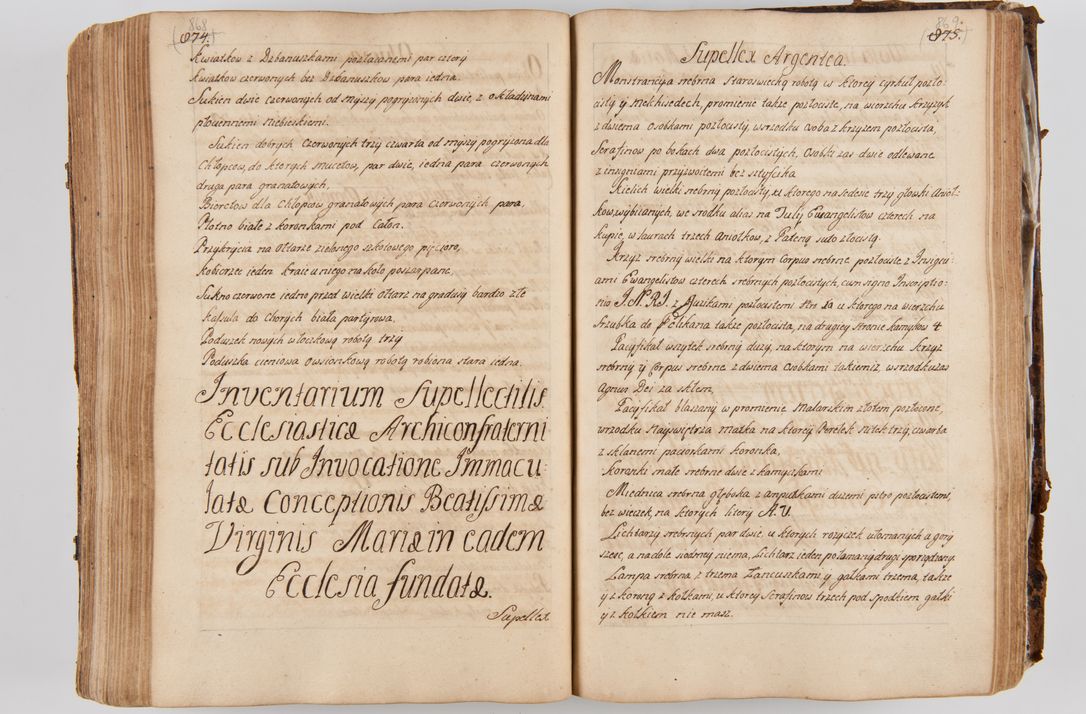 868
874.
Kwiatkow z Dzbanuszkami pozłacanemi par cztery
Kwiatkow czerwonych bez Dzbanuszkow para iedna.
Sukien dwie czerwonych od myszy pogryzionych dwie, z okładzinami
płociennemi niebieskiemi.
Sukien dobrych czerwonych trzy czwarta od myszy pogryziona dla
Chłopcow, do ktorych mucetow, par dwie, iedna para czerwonych
druga para granatowych,
Bieretow dla Chłopcow granatowych para czerwonych para,
Płotno białe z koronkami pod Całon.
Przykrycia na ołtarze zielonego szkotowego pięcioro,
Kobierze ieden kraie u niego na koło poszarpane,
Sukno czerwone iedno przed wielki ołtarz na gradusy bardzo złe
Kapsula do chorych biała partyrowa.
Poduszek nowych włoczkową robotą trzy
Poduszka cieniowa owsionkową robotą robiona stara iedna.
Inventarium Supellectilis
Ecclesiasticæ Archiconfraterni
tatis sub Invocatione Immacu
latæ Conceptionis Beatissimæ
Virginis Mariæ in eadem
Ecclesia fundatæ.
Supellex
869.
875.
Supellex Argentea.
Monstrancya srebrna staroswiecką robotą w ktorey cyrkuł pozło
cisty y Melchisedech, promienie także pozłociste, na wierzchu krzyżyk
z dwiema osobkami pozłocisty, w srzodku osoba z krzyżem pozłocista,
Serafinow po bokach dwa pozłocistych, Osobki zas dwie odlewane
z insigniami przyzwoitemi bez sztyfcika
Kielich wielki srebrny pozłocisty, u ktorego na sedesie trzy głowki Anioł
kow, wybiianych, we srodku alias na Tuliy Ewangelistow czterech na
kupie, w laurach trzech Aniołkow, z Pateną suto złocistą.
Krzyż srebrny wielki na ktorym Corpus srebrne pozłociste z Insigni:
ami Ewangelistow czterech srebrnych pozłocistych, cum signo Inscriptio:
nis I. N. R. I. z guzikami pozłocistemi Nro 10 u ktorego na wierzchu
Srzubka do Pelikana także pozłocista, na drugiey stronie kamykow 4
Pacyfikał wszytek srebrny duży, na ktorym na wierzchu krzyż
srebrny y Corpus srebrne z dwiema osobkami takiemiż w srzodku zas
Agnus Dei za szkłem,
Pacyfikał blaszany w promienie Malarskim złotem pozłocone,
w rzodku Nayswiętsza Matka na ktorey Perełek sztek trzy, czwarta
z sklanemi paciorkami koronka,
Koronki małe srebrne dwie z kamyszkami
Miednica srebrna głęboka z ampułkami dużemi pstro pozłocistemi,
bez wieczek, na ktorych litery A. V.
Lichtarzy srebrnych par dwie, w ktorych rożyczek ułomanych u gory
szesc, a na dole siodmey niema, Lichtarz ieden połamany drugi sporządzony.
Lampa srebrna z trzema Łancuszkami y gałkami trzema, także
y z koroną z kołkami, u ktorey Serafinow trzech pod spodkiem gałki
y z kołkiem nie masz.